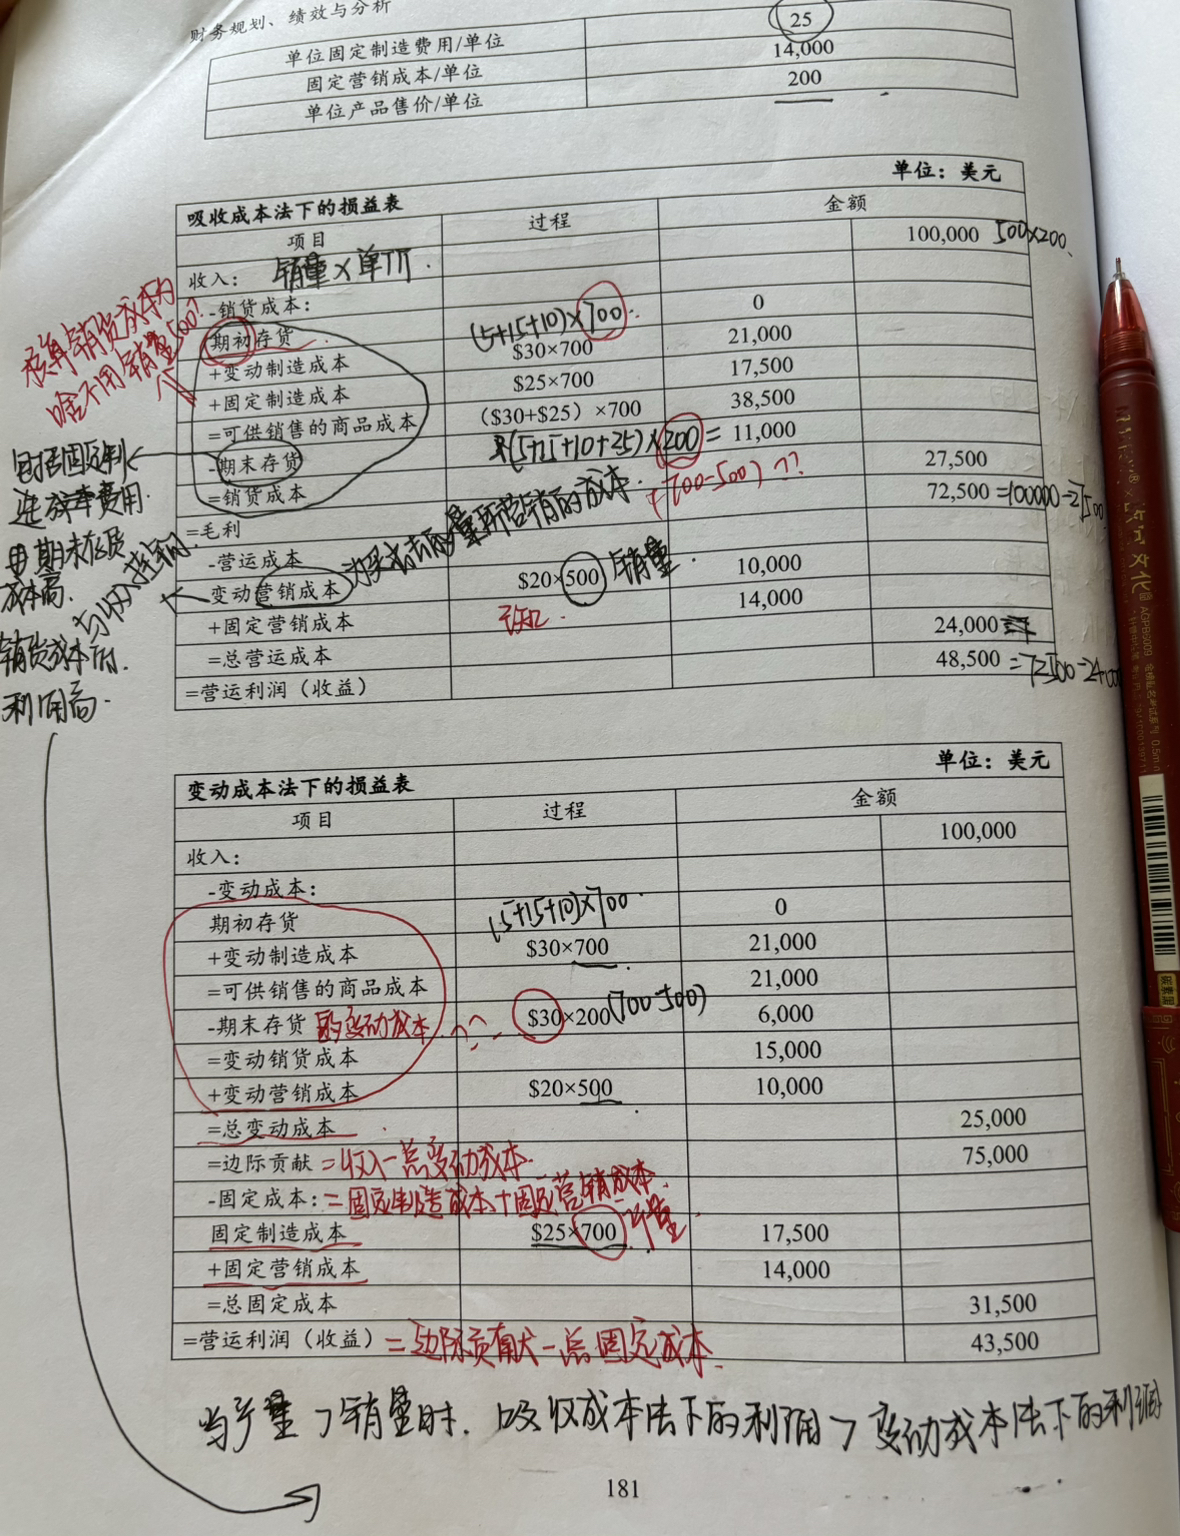 财务规划、绩效与分析
单位固定制造费用/单位 25
固定营销成本/单位 14,000
单位产品售价/单位 200
单位：美元
吸收成本法下的损益表
项目 过程 金额
收入： 销量×单价 100,000 500×200
-销货成本：
期初存货 0
(5+15+10)×700
+变动制造成本 $30×700 21,000
+固定制造成本 $25×700 17,500
=可供销售的商品成本 ($30+$25) ×700 38,500
-期末存货 (5+15+10+25)×200 = 11,000
(700-500) ??
=销货成本 27,500
=毛利 72,500 =100000-27500
-营运成本
变动营销成本 $20×500 销量 10,000
+固定营销成本 已知 14,000
=总营运成本 24,000
=营运利润（收益） 48,500 =72500-24000
核算销货成本为
啥不用销量500?
包括固定制
造成本费用
期末存货
成本高
销货成本
利润高
单位：美元
变动成本法下的损益表
项目 过程 金额
收入： 100,000
-变动成本：
期初存货 0
(5+15+10)×700
+变动制造成本 $30×700 21,000
=可供销售的商品成本 21,000
-期末存货 的变动成本 ?? $30×200 (700-500) 6,000
=变动销货成本 15,000
+变动营销成本 $20×500 10,000
=总变动成本 25,000
=边际贡献 =收入-总变动成本 75,000
-固定成本： =固定制造成本+固定营销成本
固定制造成本 $25×700 产量 17,500
+固定营销成本 14,000
=总固定成本 31,500
=营运利润（收益） =边际贡献-总固定成本 43,500
当产量>销量时，吸收成本法下的利润>变动成本法下的利润
181